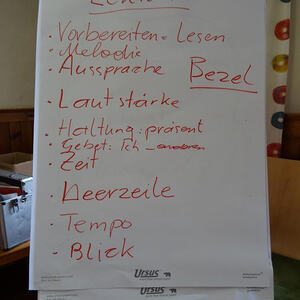 · Vorbereiten · Lesen
· Melodie
· Aussprache Bezel
· Lautstärke
· Haltung: präsent
· Gebet: Ich –
· Zeit
· Leerzeile
· Tempo
· Blick
Ursus
Ursus